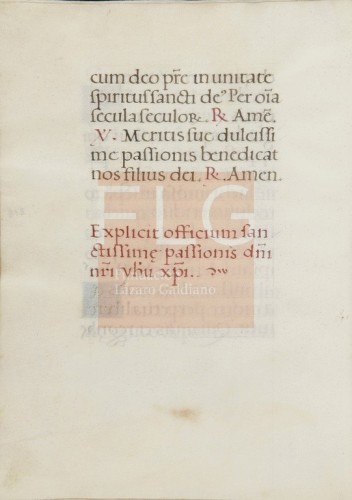 cum deo pr̄e in unitate
spiritus sancti deꝰ Per oīa
secula seculoꝝ. ℞ Amē.
V. Meritis sue dulcissi
me passionis benedicat
nos filius dei. ℞. Amen.
Explicit officium san
ctissimę passionis dn̄i
nr̄i yħu xp̄i.
FLG
Lázaro Galdiano